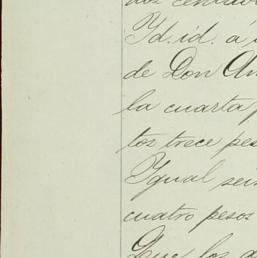 dos centavos
Id. id. á
de Don An
la cuarta p
tos trece pes
Igual seis
cuatro pesos
Que los d